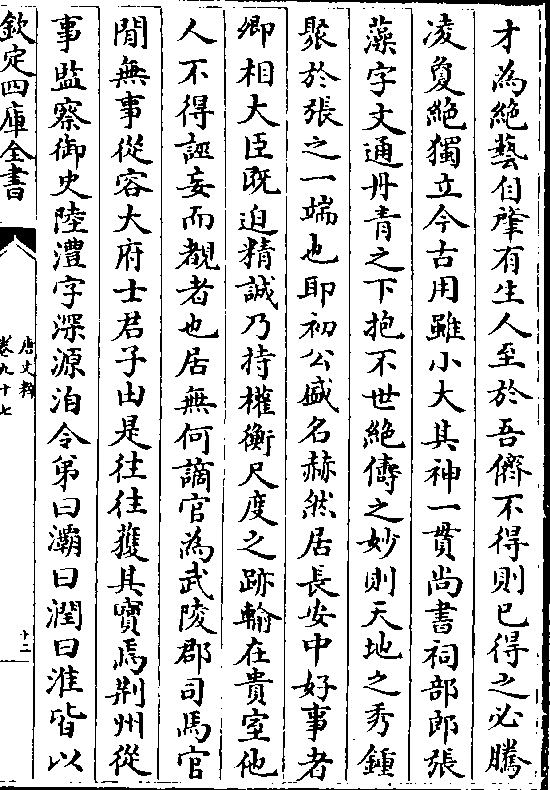 才為絶藝自肇有生人至於吾儕不得則已得之必騰
凌敻絶獨立今古用雖小大其神一貫尚書祠部郎張
藻字文通丹青之下抱不世絶儔之妙則天地之秀鍾
聚於張之一端也耶初公盛名赫然居長安中好事者
卿相大臣既迫精誠乃持權衡尺度之跡輸在貴室他
人不得誣妄而覩者也居無何謫官為武陵郡司馬官
閒無事從容大府士君子由是往往獲其寶焉荆州從
事監察御史陸澧字深源洎令弟曰灞曰潤曰淮皆以
欽定四庫全書
唐文粹
卷九十七
十二